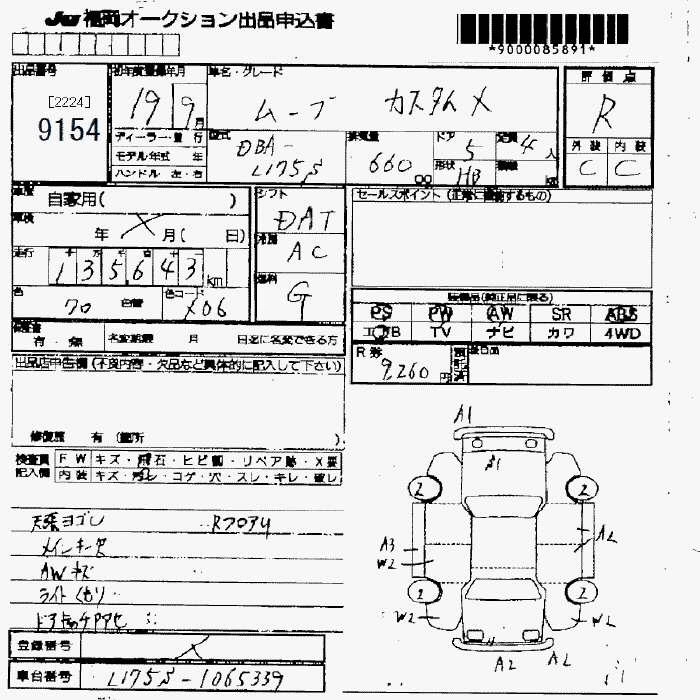 JU 福岡オークション出品申込書
*9000085891*
出品番号 [2224] 9154
初年度登録年月 19 9月
車名・グレード ムーブ カスタムX
評価点 R
外装 C 内装 C
ディーラー・並行
モデル年式 年
ハンドル 左・右
型式 DBA-L175S
排気量 660 cc
ドア 5
形状 HB
定員 4人
車歴 自家用( )
車検 年 X 月( 日)
走行 135643 km
色 70
色コード X06
シフト DAT
冷房 AC
燃料 G
セールスポイント (正常に機能するもの)
装備品(純正品に限る)
PS PW AW SR ABS
エアB TV ナビ カワ 4WD
R券 9,260円
預託済
後日品
有・無 名変期限 月 日迄に名変できる方
出品店申告欄(不良内容・欠品など具体的に記入して下さい)
修復歴 有 (箇所 )
検査員記入欄
FW キズ・飛石・ヒビ割・リペア跡・X要
内装 キズ・汚レ・コゲ・穴・スレ・キレ・破レ
天張ヨゴレ Rフロアサ
メインキー欠
AWキズ
ライトくもり
登録番号 X
車台番号 L175S-1065339
A1
2 2
A3 W2 A2
2 2
W2 W2
A2 A2